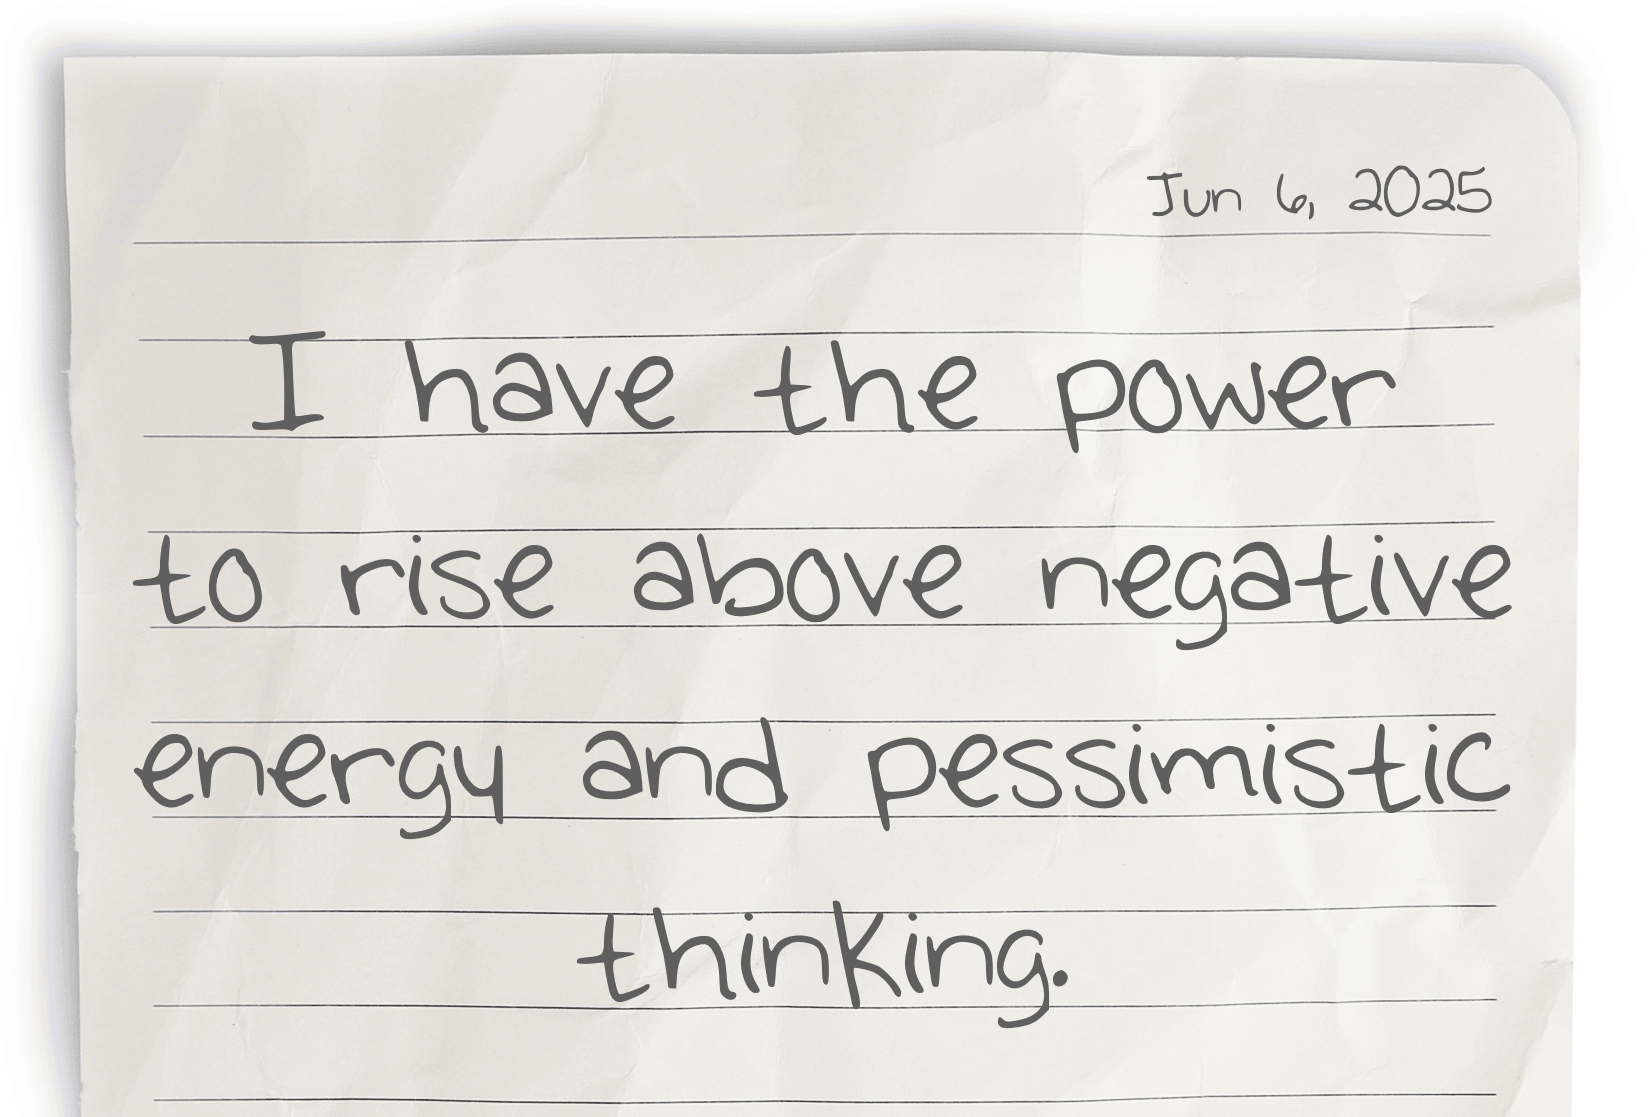 Jun 6, 2025
I have the power
to rise above negative
energy and pessimistic
thinking.